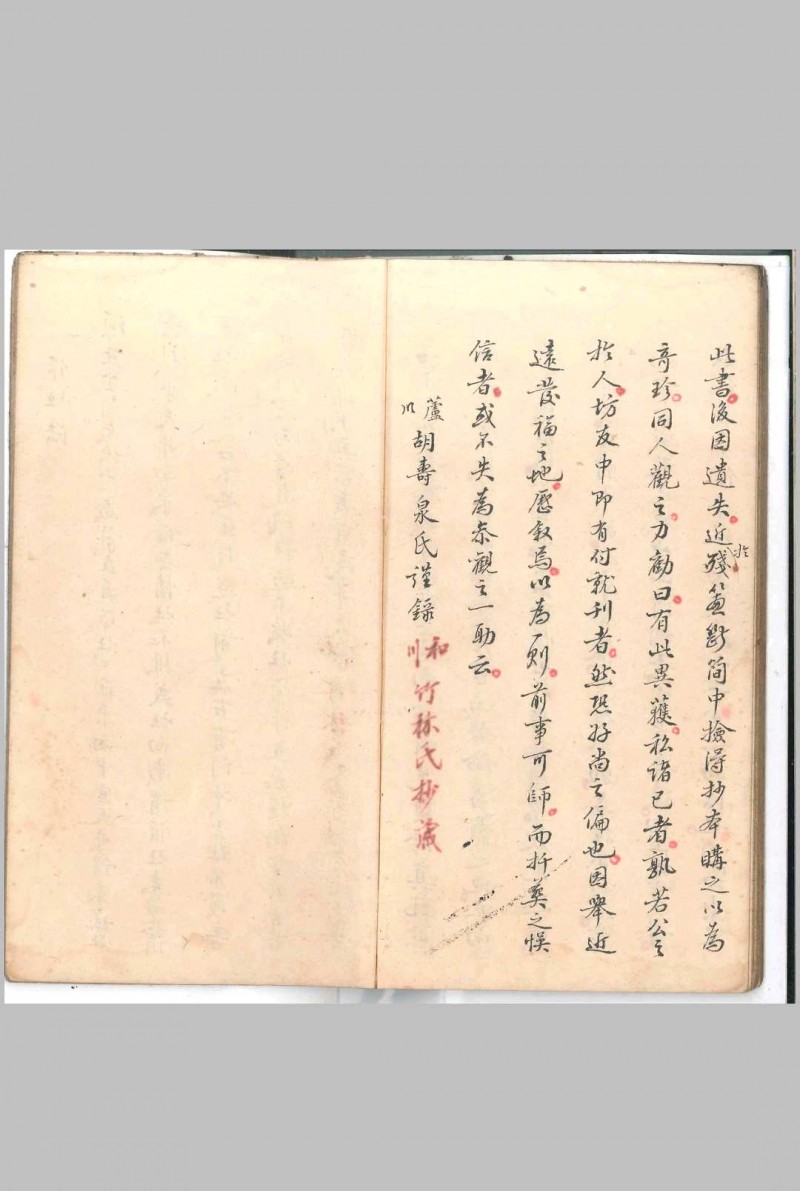 此書後因遺失近於殘篇斷简中撿得抄本購之以為
奇珍同人觀之力勸曰有此異獲私諸己者孰若公之
於人坊友中即有付就刊者然恐好尚之偏也因舉近
遠發福之地歷叙焉以為一則前事可師而折葬之悮
信者或不失為叅觀之一助云
蘆川胡壽泉氏謹錄
和川竹林氏抄藏